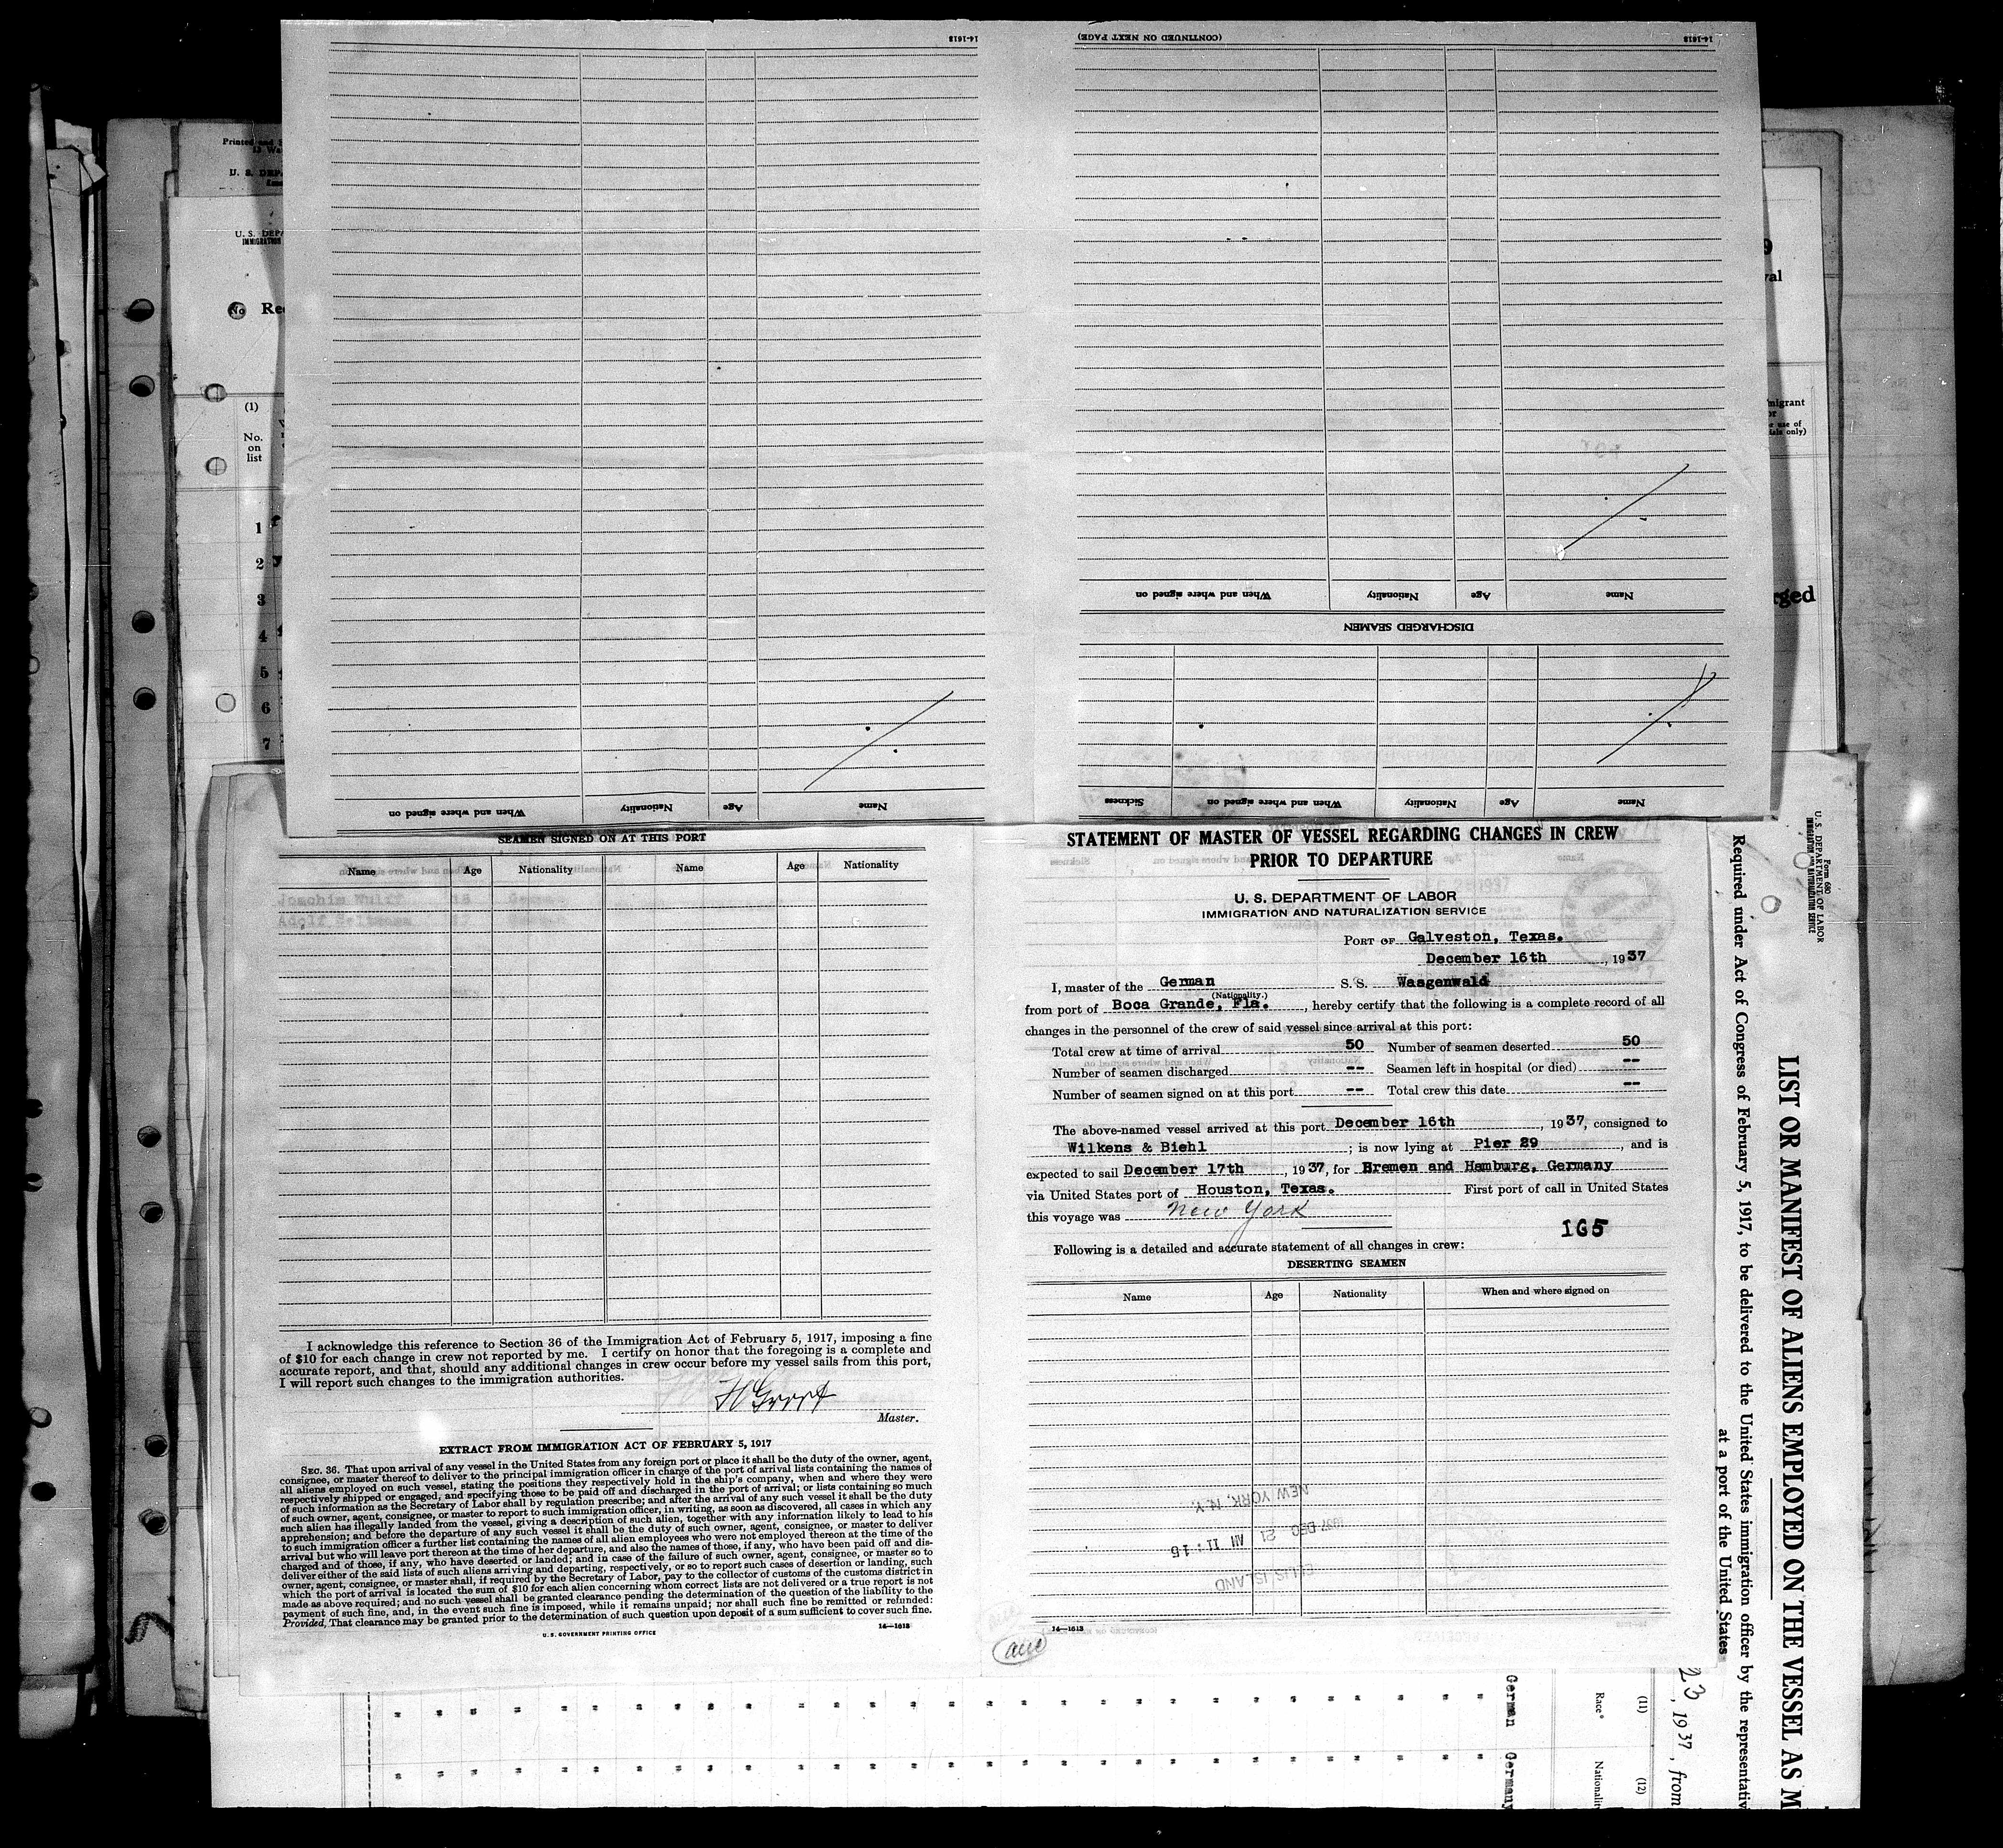 14-1613
(CONTINUED ON NEXT PAGE)
14-1613
When and where signed on
Nationality
Age
Name
DISCHARGED SEAMEN
Sickness
When and where signed on
Nationality
Age
Name
When and where signed on
Nationality
Age
Name
Printed and
U. S. DEP
U. S. DEPA
IMMIGRATION
No
(1)
No.
on
list
1
2
3
4
5
6
7
SEAMEN SIGNED ON AT THIS PORT
Name Age Nationality Name Age Nationality
Joachim Wulff 18 German
Adolf
I acknowledge this reference to Section 36 of the Immigration Act of February 5, 1917, imposing a fine
of $10 for each change in crew not reported by me. I certify on honor that the foregoing is a complete and
accurate report, and that, should any additional changes in crew occur before my vessel sails from this port,
I will report such changes to the immigration authorities.
Master.
EXTRACT FROM IMMIGRATION ACT OF FEBRUARY 5, 1917
SEC. 36. That upon arrival of any vessel in the United States from any foreign port or place it shall be the duty of the owner, agent,
consignee, or master thereof to deliver to the principal immigration officer in charge of the port of arrival lists containing the names of
all aliens employed on such vessel, stating the positions they respectively hold in the ship's company, when and where they were
respectively shipped or engaged, and specifying those to be paid off and discharged in the port of arrival; or lists containing so much
of such information as the Secretary of Labor shall by regulation prescribe; and after the arrival of any such vessel it shall be the duty
of such owner, agent, consignee, or master to report to such immigration officer, in writing, as soon as discovered, all cases in which any
such alien has illegally landed from the vessel, giving a description of such alien, together with any information likely to lead to his
apprehension; and before the departure of any such vessel it shall be the duty of such owner, agent, consignee, or master to deliver
to such immigration officer a further list containing the names of all alien employees who were not employed thereon at the time of the
arrival but who will leave port thereon at the time of her departure, and also the names of those, if any, who have been paid off and dis-
charged and of those, if any, who have deserted or landed; and in case of the failure of such owner, agent, consignee, or master so to
deliver either of the said lists of such aliens arriving and departing, respectively, or so to report such cases of desertion or landing, such
owner, agent, consignee, or master shall, if required by the Secretary of Labor, pay to the collector of customs of the customs district in
which the port of arrival is located the sum of $10 for each alien concerning whom correct lists are not delivered or a true report is not
made as above required; and no such vessel shall be granted clearance pending the determination of the question of the liability to the
payment of such fine, and, in the event such fine is imposed, while it remains unpaid; nor shall such fine be remitted or refunded:
Provided, That clearance may be granted prior to the determination of such question upon deposit of a sum sufficient to cover such fine.
U. S. GOVERNMENT PRINTING OFFICE
14—1613
STATEMENT OF MASTER OF VESSEL REGARDING CHANGES IN CREW
PRIOR TO DEPARTURE
U. S. DEPARTMENT OF LABOR
IMMIGRATION AND NATURALIZATION SERVICE
PORT OF Galveston, Texas.
December 16th, 1937
I, master of the German S. S. Wasgenwald
(Nationality.)
from port of Boca Grande, Fla., hereby certify that the following is a complete record of all
changes in the personnel of the crew of said vessel since arrival at this port:
Total crew at time of arrival 50 Number of seamen deserted 50
Number of seamen discharged -- Seamen left in hospital (or died) --
Number of seamen signed on at this port -- Total crew this date --
The above-named vessel arrived at this port December 16th, 1937, consigned to
Wilkens & Biehl; is now lying at Pier 29, and is
expected to sail December 17th, 1937, for Bremen and Hamburg, Germany
via United States port of Houston, Texas. First port of call in United States
this voyage was New York
165
Following is a detailed and accurate statement of all changes in crew:
DESERTING SEAMEN
Name Age Nationality When and where signed on
NEW YORK, N.Y.
1937 DEC 21 AM 11:15
ELLIS ISLAND
14—1613
Form 680
U. S. DEPARTMENT OF LABOR
IMMIGRATION AND NATURALIZATION SERVICE
LIST OR MANIFEST OF ALIENS EMPLOYED ON THE VESSEL AS M
Required under Act of Congress of February 5, 1917, to be delivered to the United States immigration officer by the representativ
at a port of the United States
23, 1937, from
(11)
Race*
German
(12)
Nationalit
Germany